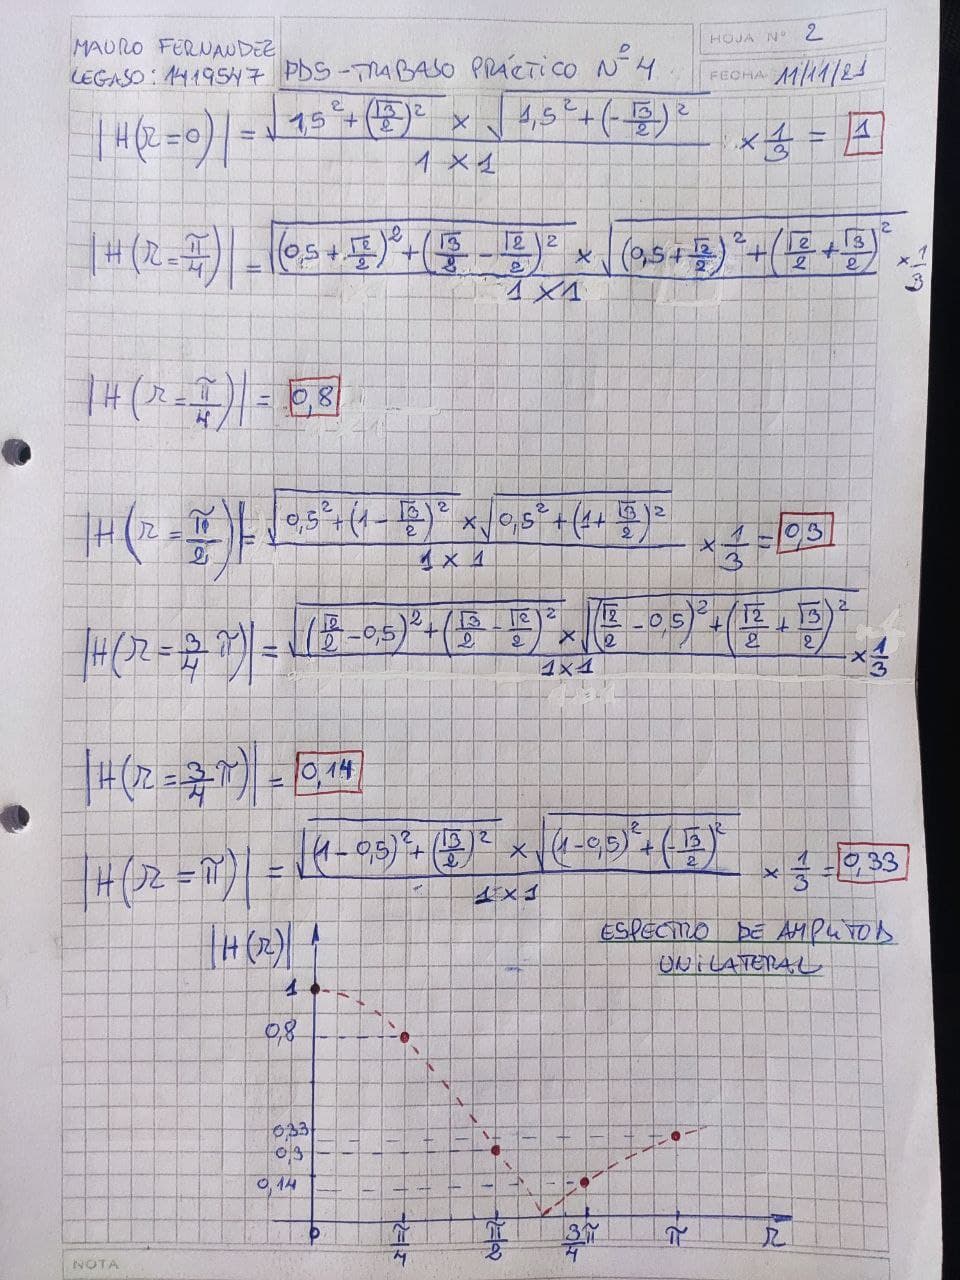 MAURO FERNANDEZ
LEGAJO: 1419547
PDS - TRABAJO PRÁCTICO Nº 4
HOJA Nº 2
FECHA 11/11/21
|H(Ω=0)| = √(1,5² + (√3/2)²) × √(1,5² + (-√3/2)²) / 1 × 1 × 1/3 = 1
|H(Ω=π/4)| = √((0,5 + √2/2)² + (√3/2 - √2/2)²) × √((0,5 + √2/2)² + (√2/2 + √3/2)²) / 1 × 1 × 1/3
|H(Ω=π/4)| = 0,8
|H(Ω=π/2)| = √(0,5² + (1 - √3/2)²) × √(0,5² + (1 + √3/2)²) / 1 × 1 × 1/3 = 0,3
|H(Ω=3/4 π)| = √((√2/2 - 0,5)² + (√3/2 - √2/2)²) × √((√2/2 - 0,5)² + (√2/2 + √3/2)²) / 1×1 × 1/3
|H(Ω=3/4 π)| = 0,14
|H(Ω=π)| = √((1 - 0,5)² + (√3/2)²) × √((1 - 0,5)² + (-√3/2)²) / 1 × 1 × 1/3 = 0,33
|H(Ω)|
ESPECTRO DE AMPLITUD
UNILATERAL
1
0,8
0,33
0,3
0,14
0 π/4 π/2 3/4 π π Ω
NOTA